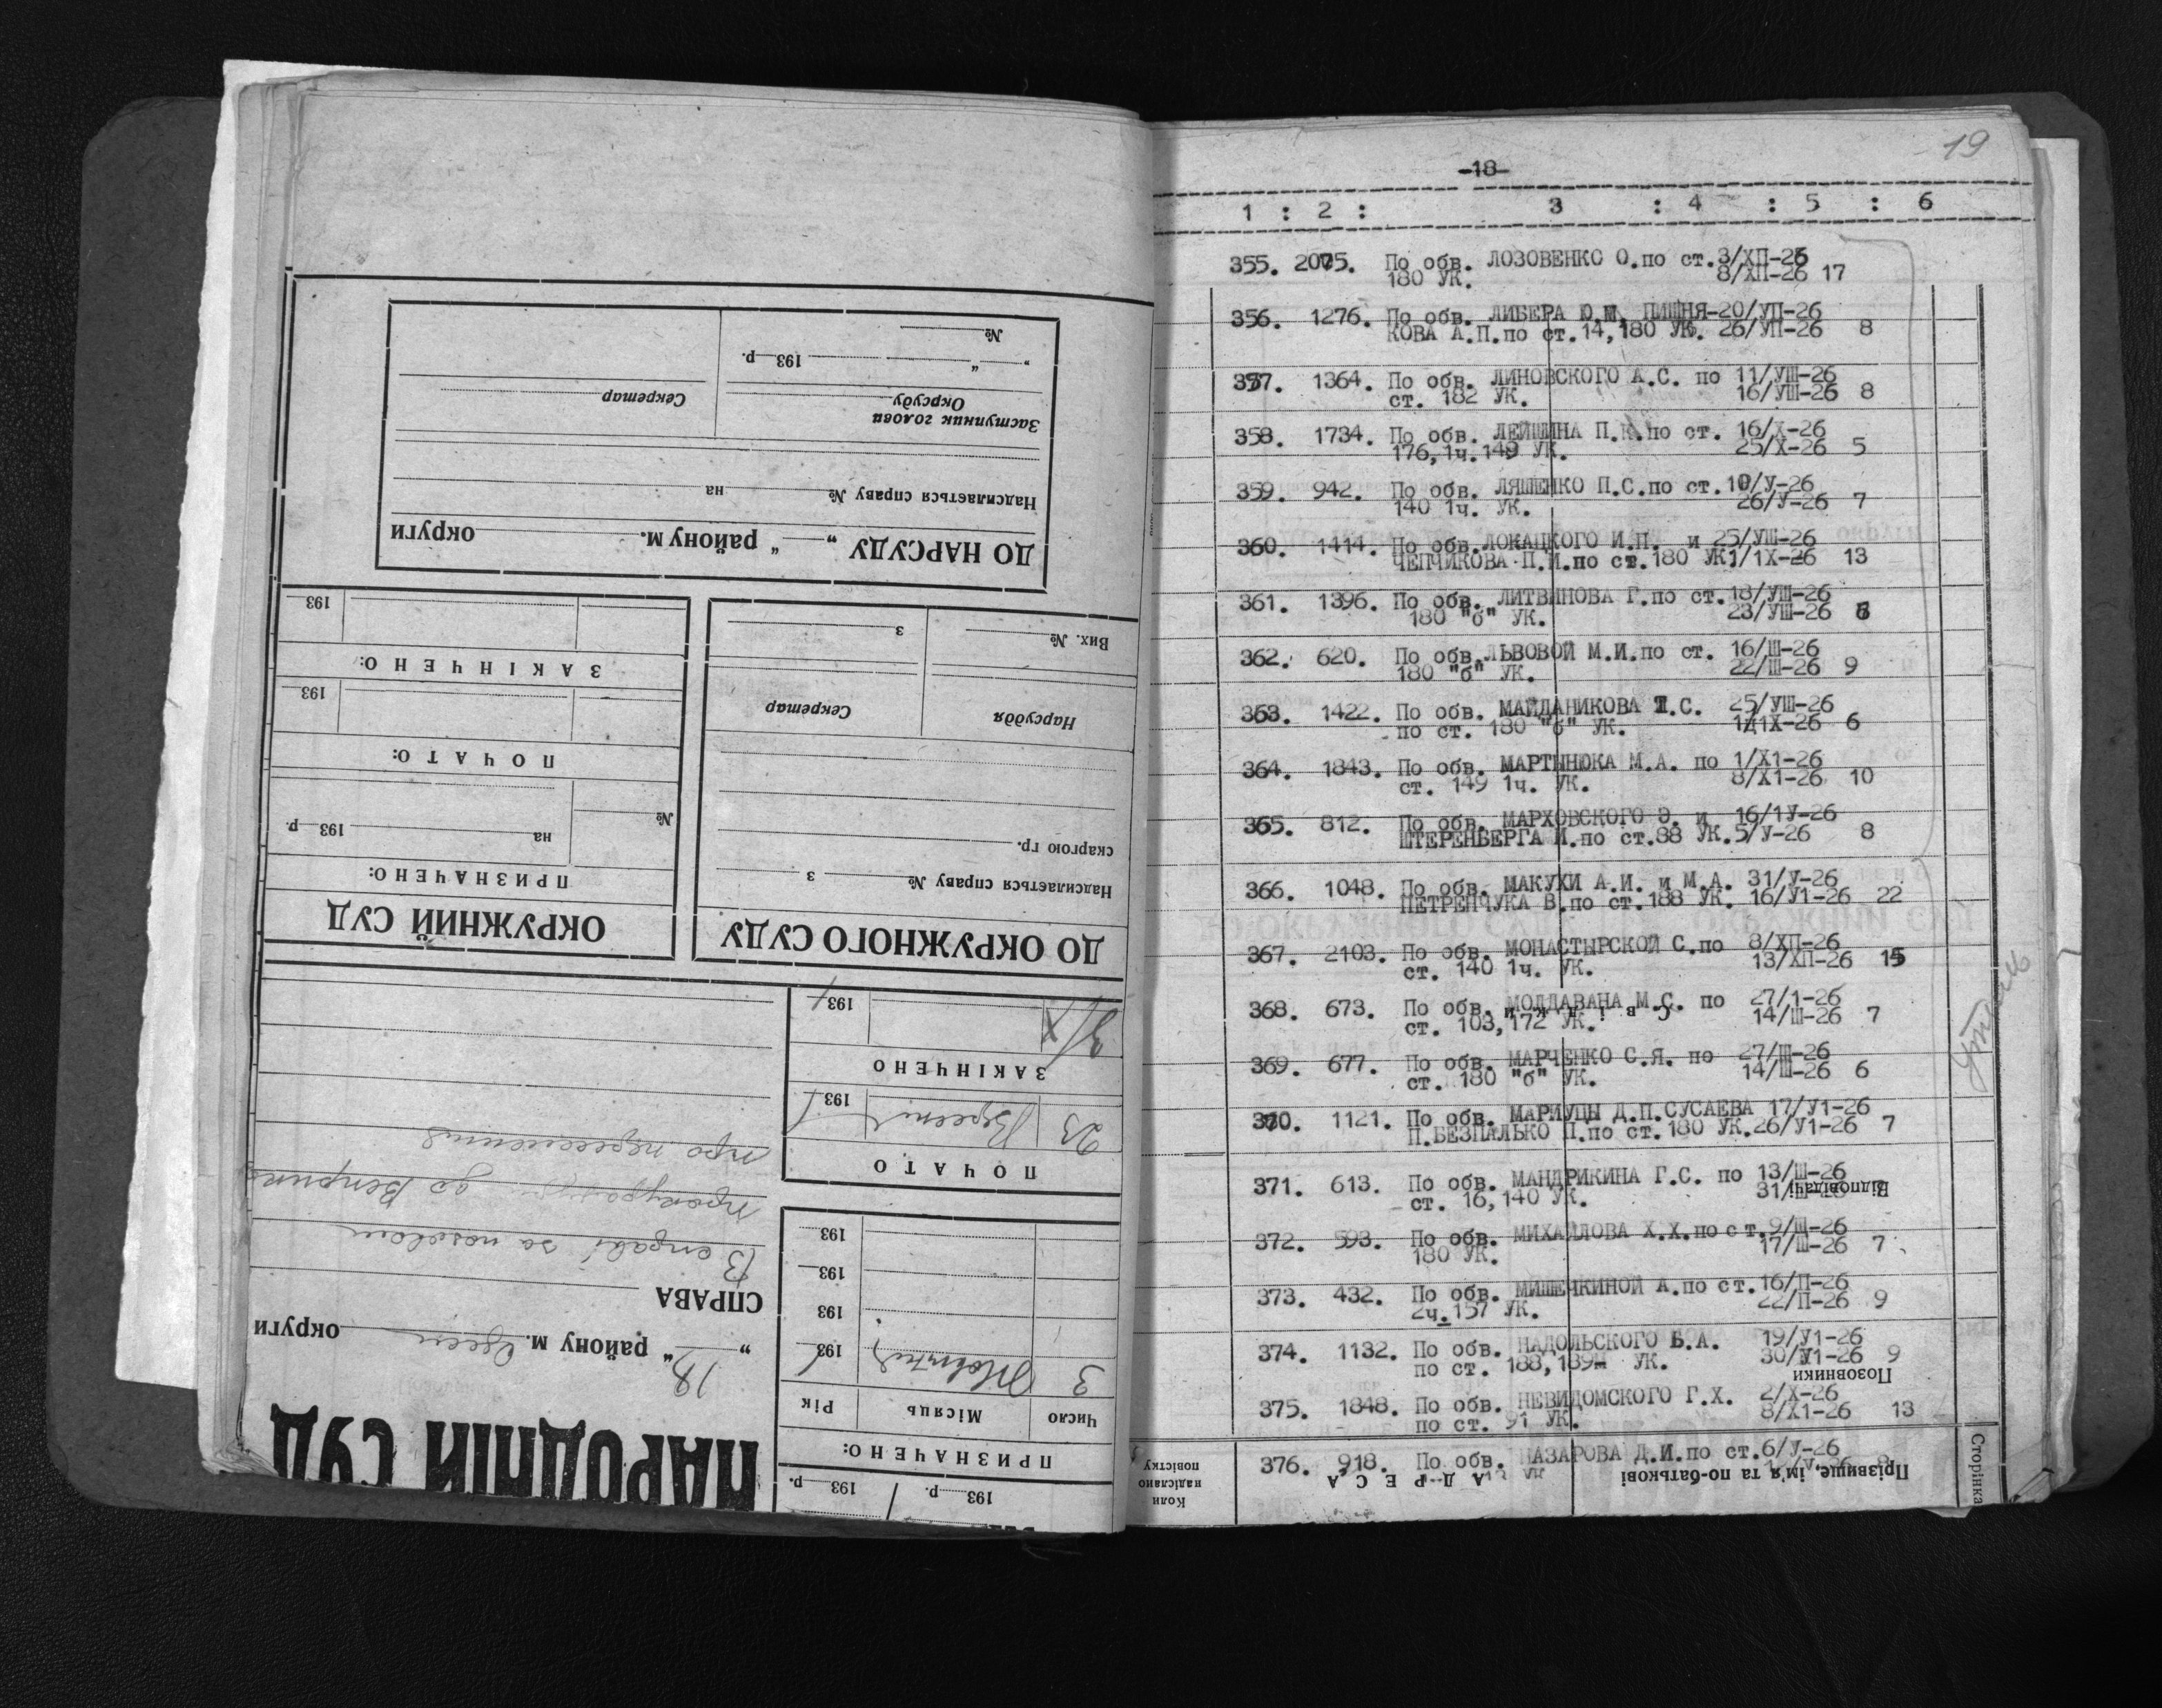 НАРОДНІЙ СУД
18 „ району м. Одеси округи
СПРАВА
В справі за позовом
прокуратури до
про переселення
193 р.
193 р.
ПРИЗНАЧЕНО:
Число Місяць Рік
3 Жовтня 193
193
193
193
ПОЧАТО
23 Вересня 193
ЗАКІНЧЕНО
3/X 193
ДО ОКРУЖНОГО СУДУ
Надсилається справу № з
скаргою гр.
Нарсуддя Секретар
Вих. № з
ОКРУЖНИЙ СУД
ПРИЗНАЧЕНО:
№ на 193 р.
ПОЧАТО:
193
ЗАКІНЧЕНО:
193
ДО НАРСУДУ „ “ району м. округи
Надсилається справу № на
Заступник голови
Окрсуду Секретар
„ “ 193 р.
№
19
-18-
1 : 2 : 3 : 4 : 5 : 6
355. 2075. По обв. ЛОЗОВЕНКО О.по ст.3/ХП-26
180 УК. 8/ХП-26 17
356. 1276. По обв. ЛИБЕРА Ю.М. ПИШНЯ-20/УП-26
КОВА А.П.по ст.14,180 УК. 26/УП-26 8
357. 1364. По обв. ЛИНОВСКОГО А.С. по 11/УШ-26
ст. 182 УК. 16/УШ-26 8
358. 1734. По обв. ЛЕЙШИНА П.К.по ст. 16/Х-26
176,1ч.149 УК. 25/Х-26 5
359. 942. По обв. ЛЯШЕНКО П.С.по ст.19/У-26
140 1ч. УК. 26/У-26 7
360. 1414. По обв.ЛОКАЦКОГО И.П. и 25/УШ-26
ЧЕПЧИКОВА П.И.по ст.180 УК1/1Х-26 13
361. 1396. По обв. ЛИТВИНОВА Г.по ст.18/УШ-26
180 "б" УК. 23/УШ-26
362. 620. По обв.ЛЬВОВОЙ М.И.по ст. 16/Ш-26
180 "б" УК. 22/Ш-26 9
363. 1422. По обв. МАЙДАНИКОВА Т.С. 25/УШ-26
по ст. 180 "б" УК. 1/1Х-26 6
364. 1843. По обв. МАРТЫНЮКА М.А. по 1/Х1-26
ст. 149 1ч. УК. 8/Х1-26 10
365. 812. По обв. МАРХОВСКОГО Э. и 16/1У-26
ШТЕРЕНБЕРГА И.по ст.88 УК.5/У-26 8
366. 1048. По обв. МАКУХИ А.И. и М.А. 31/У-26
ПЕТРЕНЧУКА В.по ст.188 УК. 16/У1-26 22
367. 2103. По обв. МОНАСТЫРСКОЙ С.по 8/ХП-26
ст. 140 1ч. УК. 13/ХП-26 15
368. 673. По обв. МОЛДАВАНА М.С. по 27/1-26
Свідки
ст. 103,172 УК. 14/Ш-26 7
369. 677. По обв. МАРЧЕНКО С.Я. по 27/Ш-26
ст. 180 "б" УК. 14/Ш-26 6
370. 1121. По обв. МАРИУЦЫ Д.П.СУСАЕВА 17/У1-26
П.БЕЗПАЛЬКО П.по ст.180 УК.26/У1-26 7
371. 613. По обв. МАНДРИКИНА Г.С. по 13/Ш-26
ст. 16,140 УК. 31/
Відповідачі
372. 593. По обв. МИХАЙЛОВА Х.Х.по ст.9/Ш-26
180 УК. 17/Ш-26 7
373. 432. По обв. МИШЕЧКИНОЙ А.по ст.16/П-26
2ч.157 УК. 22/П-26 9
374. 1132. По обв. НАДОЛЬСКОГО Б.А. 19/У1-26
по ст. 188,189 УК. 30/У1-26 9
Позовники
375. 1848. По обв. НЕВИДОМСКОГО Г.Х. 2/Х-26
по ст. 91 УК. 8/Х1-26 13
376. 918. По обв. НАЗАРОВА Д.И.по ст.6/У-26
Сторінка
Прізвище, ім'я та по-батькові
АДРЕСА
Коли надіслано повістку